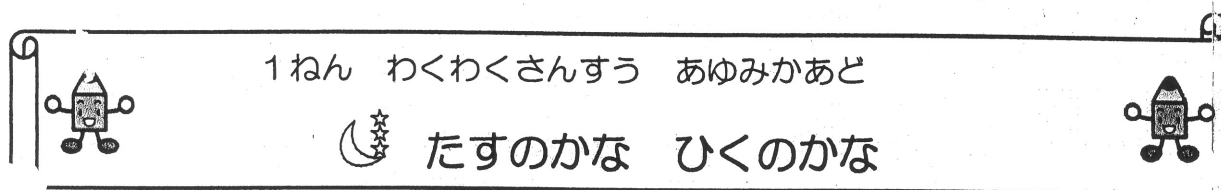 1ねん　わくわくさんすう　あゆみかあど
たすのかな　ひくのかな